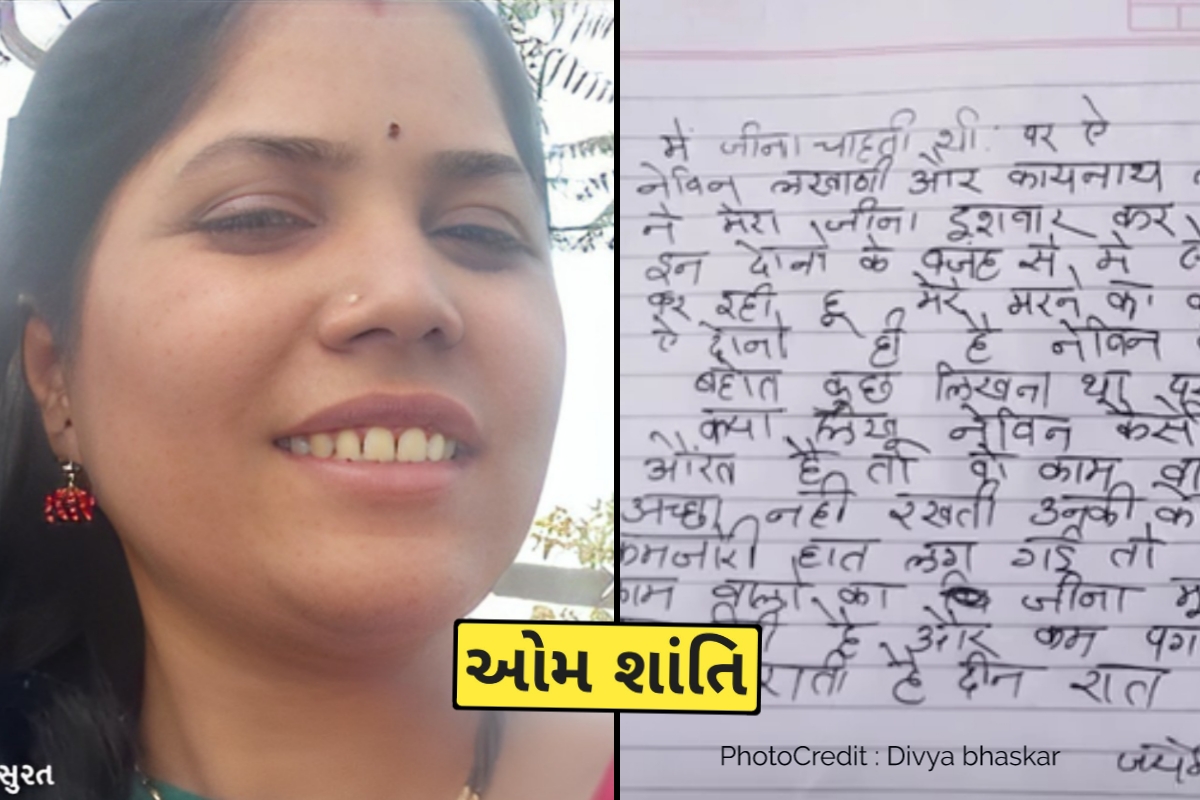 मैं जीना चाहती थी. पर ऐ
नेविन लखाणी और कायनाथ
ने मेरा जीना दुशवार कर
इन दोनो के वजह से मे
कर रही हू मेरे मरने का
ऐ दोनो ही है नेविन
बहोत कुछ लिखना था
क्या लिखू नेविन कैसी
औरत है तो वो काम
अच्छा नही रखती उनकी
कमजोरी हात लग गई तो
काम वालो का जीना
है और कम पगा
राती है दीन रात
ઓમ શાંતિ
PhotoCredit : Divya bhaskar
સુરત